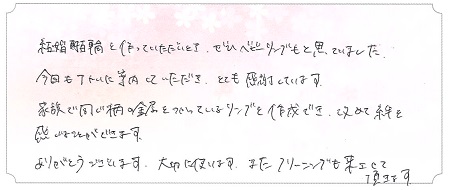 結婚指輪を作っていただいたとき、ぜひベビーリングもと思っていました。
今回も丁寧に案内していただき、とても感謝しています。
家族で同じ柄の金属をつかっているリングを作成でき、改めて絆を
感じることができます。
ありがとうございます。大切に使います。またクリーニングも来させて
頂きます